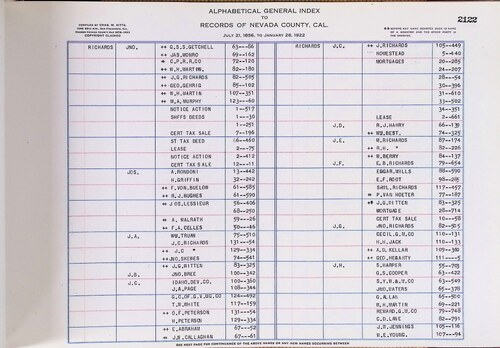 ALPHABETICAL GENERAL INDEX
TO
RECORDS OF NEVADA COUNTY, CAL.
JULY 21, 1856, TO JANUARY 28, 1922
COPYRIGHT CLAIMED
2122
RICHARDS JNO. ++ G.S.S.GETCHELL 63--86
++ JAS.MONRO 69--162
C.P.R.R.CO 72--120
++ W.H.MARTIN, 82--180
++ J.G.RICHARDS 82--505
++ GEO.GEHRIG 85--102
++ W.H.MARTIN 107--351
++ M.A.MURPHY 123--60
NOTICE ACTION 1--517
SHFFS DEEDS 1--30
1--251
CERT TAX SALE 7--196
ST TAX DEED
LEASE 2--75
NOTICE ACTION 2--412
CERT TAX SALE 12--11
JOS. A.RONDONI 13--442
H.GRIFFIN 32--242
++ F.VON BUELOW 61--585
++ R.J.HUGHES 61--590
JOS LESSIEUR 56--496
68--250
A. WALRATH 59--26
++ F.A.CELLES 50--46
J.A. WM.TRUAN 75--510
J.C.RICHARDS 131--54
++ J.C " 129--334
++ JNO.SKEWES 74--541
++ J.G.RITTER 83--325
J.B. JNO.BREE 100--342
J.C. IDAHO.DEV.CO, 100--360
J.A.PAGE 108--344
G.C.OF G.V.UG.CO 124--492
T.H.WHITE 117--159
++ O.F.PETERSON 131--54
H.PETERSON 129--334
++ E.ABRAHAM 67--52
++ J.H.CALLAGHAN 67--61
RICHARDS J.C. ++ J.RICHARDS 105--449
HOMESTEAD 5-440
MORTGAGES 20--285
24--207
28--54
30--396
31--610
33--502
34--351
LEASE 2--661
J.D. ++ R.J.HARRY 66--139
++ WM.BEST. 74--325
J.E. ++ W.RICHARDS 87--174
++ R.H. " 82--226
++ W.BERRY 84--137
J.F. ++ E.B.RICHARDS 79--654
EDGAR.MILLS 88--590
E.F.ROOT 98--285
SAML.RICHARDS 117--457
P.VAN HOETER 77--187
J.G.RITTER 83--325
MORTGAGE 28--714
CERT TAX SALE 10--58
J.G. JNO.RICHARDS 82--505
CECIL.G.M.CO 110--131
H.H.JACK 110--133
++ A.D. KELLAR 109--360
++ GEO.HEGARTY 111--5
J.H. S.HARPER 55--783
G.S.COOPER 63--422
JNO.WATERS 65--378
G.ALLAN 65--501
W.H.MARTIN 69--221
MENARD.G.M.CO 79--748
C.D.LANE 82--791
J.B.JENNINGS 105--116
W.E.YOUNG 107--94
SEE NEXT PAGE FOR CONTINUANCE OF THE ABOVE NAMES OR ANY NEW NAMES OCCURRING BETWEEN